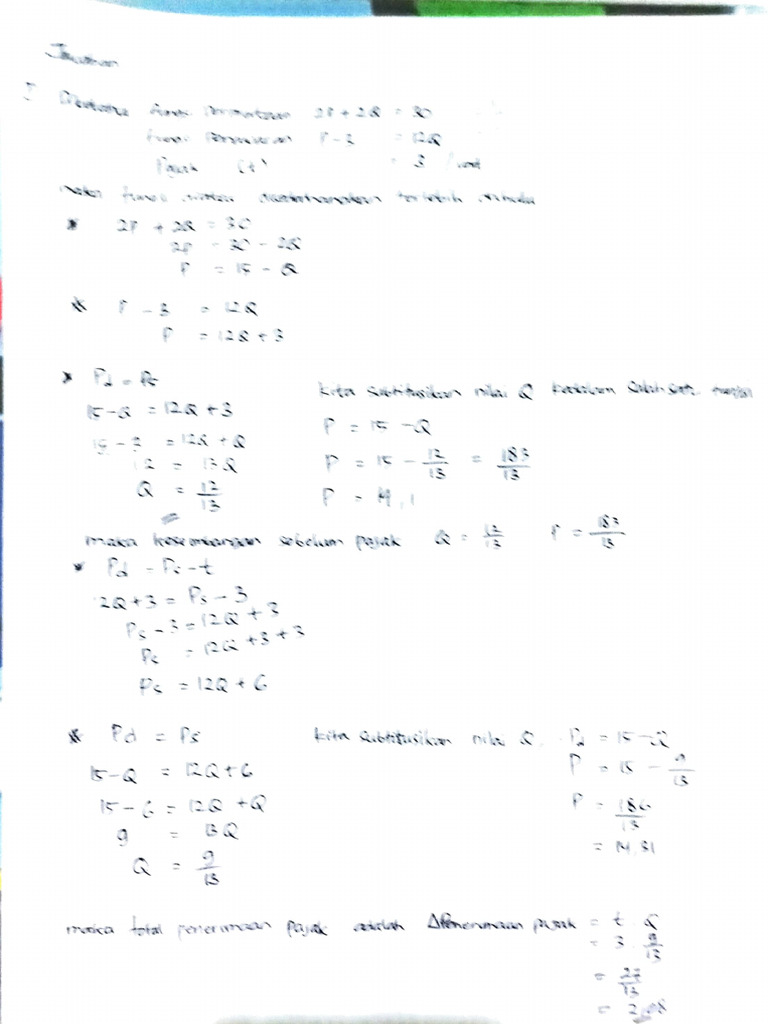 Jawaban
Diketahui fungsi Permintaan 2P + 2Q = 30
fungsi Penawaran P - 3 = 12Q
Pajak (t) = 3 / unit
maka fungsi diatas disederhanakan terlebih dahulu
* 2P + 2Q = 30
2P = 30 - 2Q
P = 15 - Q
* P - 3 = 12Q
P = 12Q + 3
* Pd = Ps
15 - Q = 12Q + 3
15 - 3 = 12Q + Q
12 = 13Q
Q = 12/13
kita subtitusikan nilai Q kedalam salah satu fungsi
P = 15 - Q
P = 15 - 12/13 = 183/13
P = 14,1
maka keseimbangan sebelum pajak Q = 12/13 P = 183/13
* Pd = Ps - t
2Q + 3 = Ps - 3
Ps - 3 = 12Q + 3
Ps = 12Q + 3 + 3
Ps = 12Q + 6
* Pd = Ps
15 - Q = 12Q + 6
15 - 6 = 12Q + Q
9 = 13Q
Q = 9/13
kita subtitusikan nilai Q. Pd = 15 - Q
P = 15 - 9/13
P = 186/13
= 14,31
maka total penerimaan pajak adalah ΔPenerimaan pajak = t . Q
= 3 . 9/13
= 27/13
= 2,08